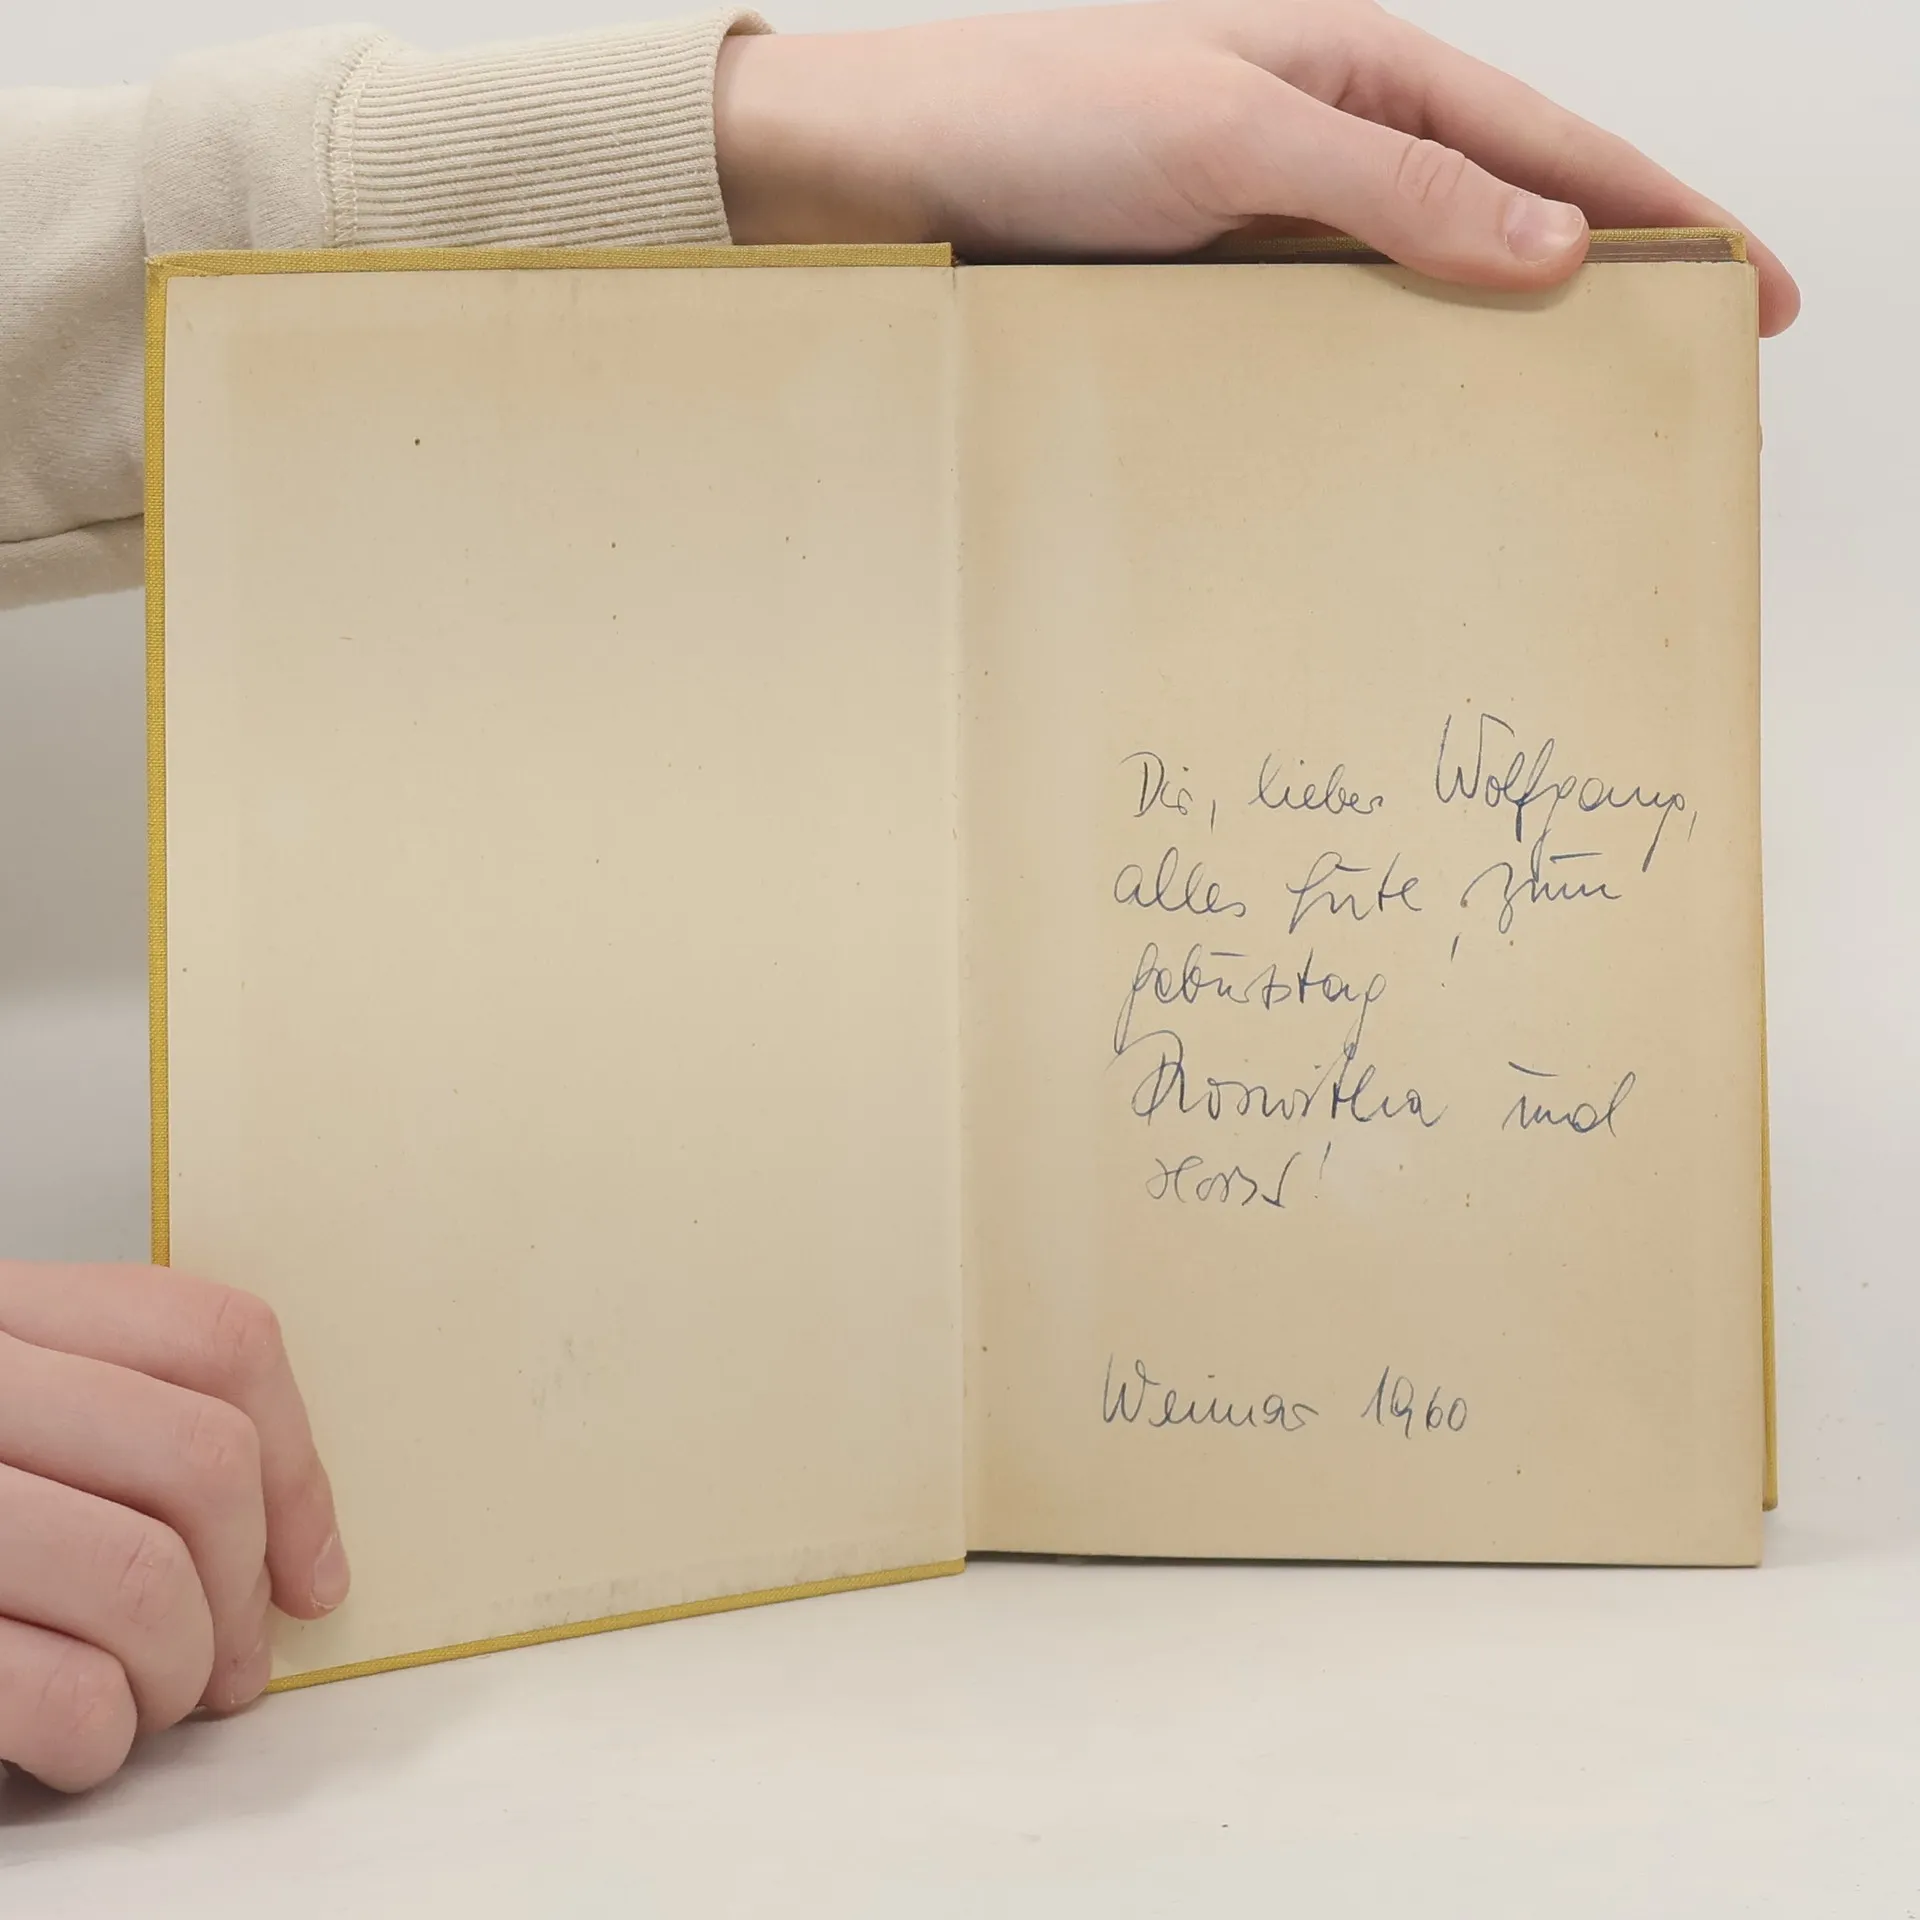 Dir, lieber Wolfgang,
alles Gute zum
Geburtstag!
Roswitha und
Horst!
Weimar 1960